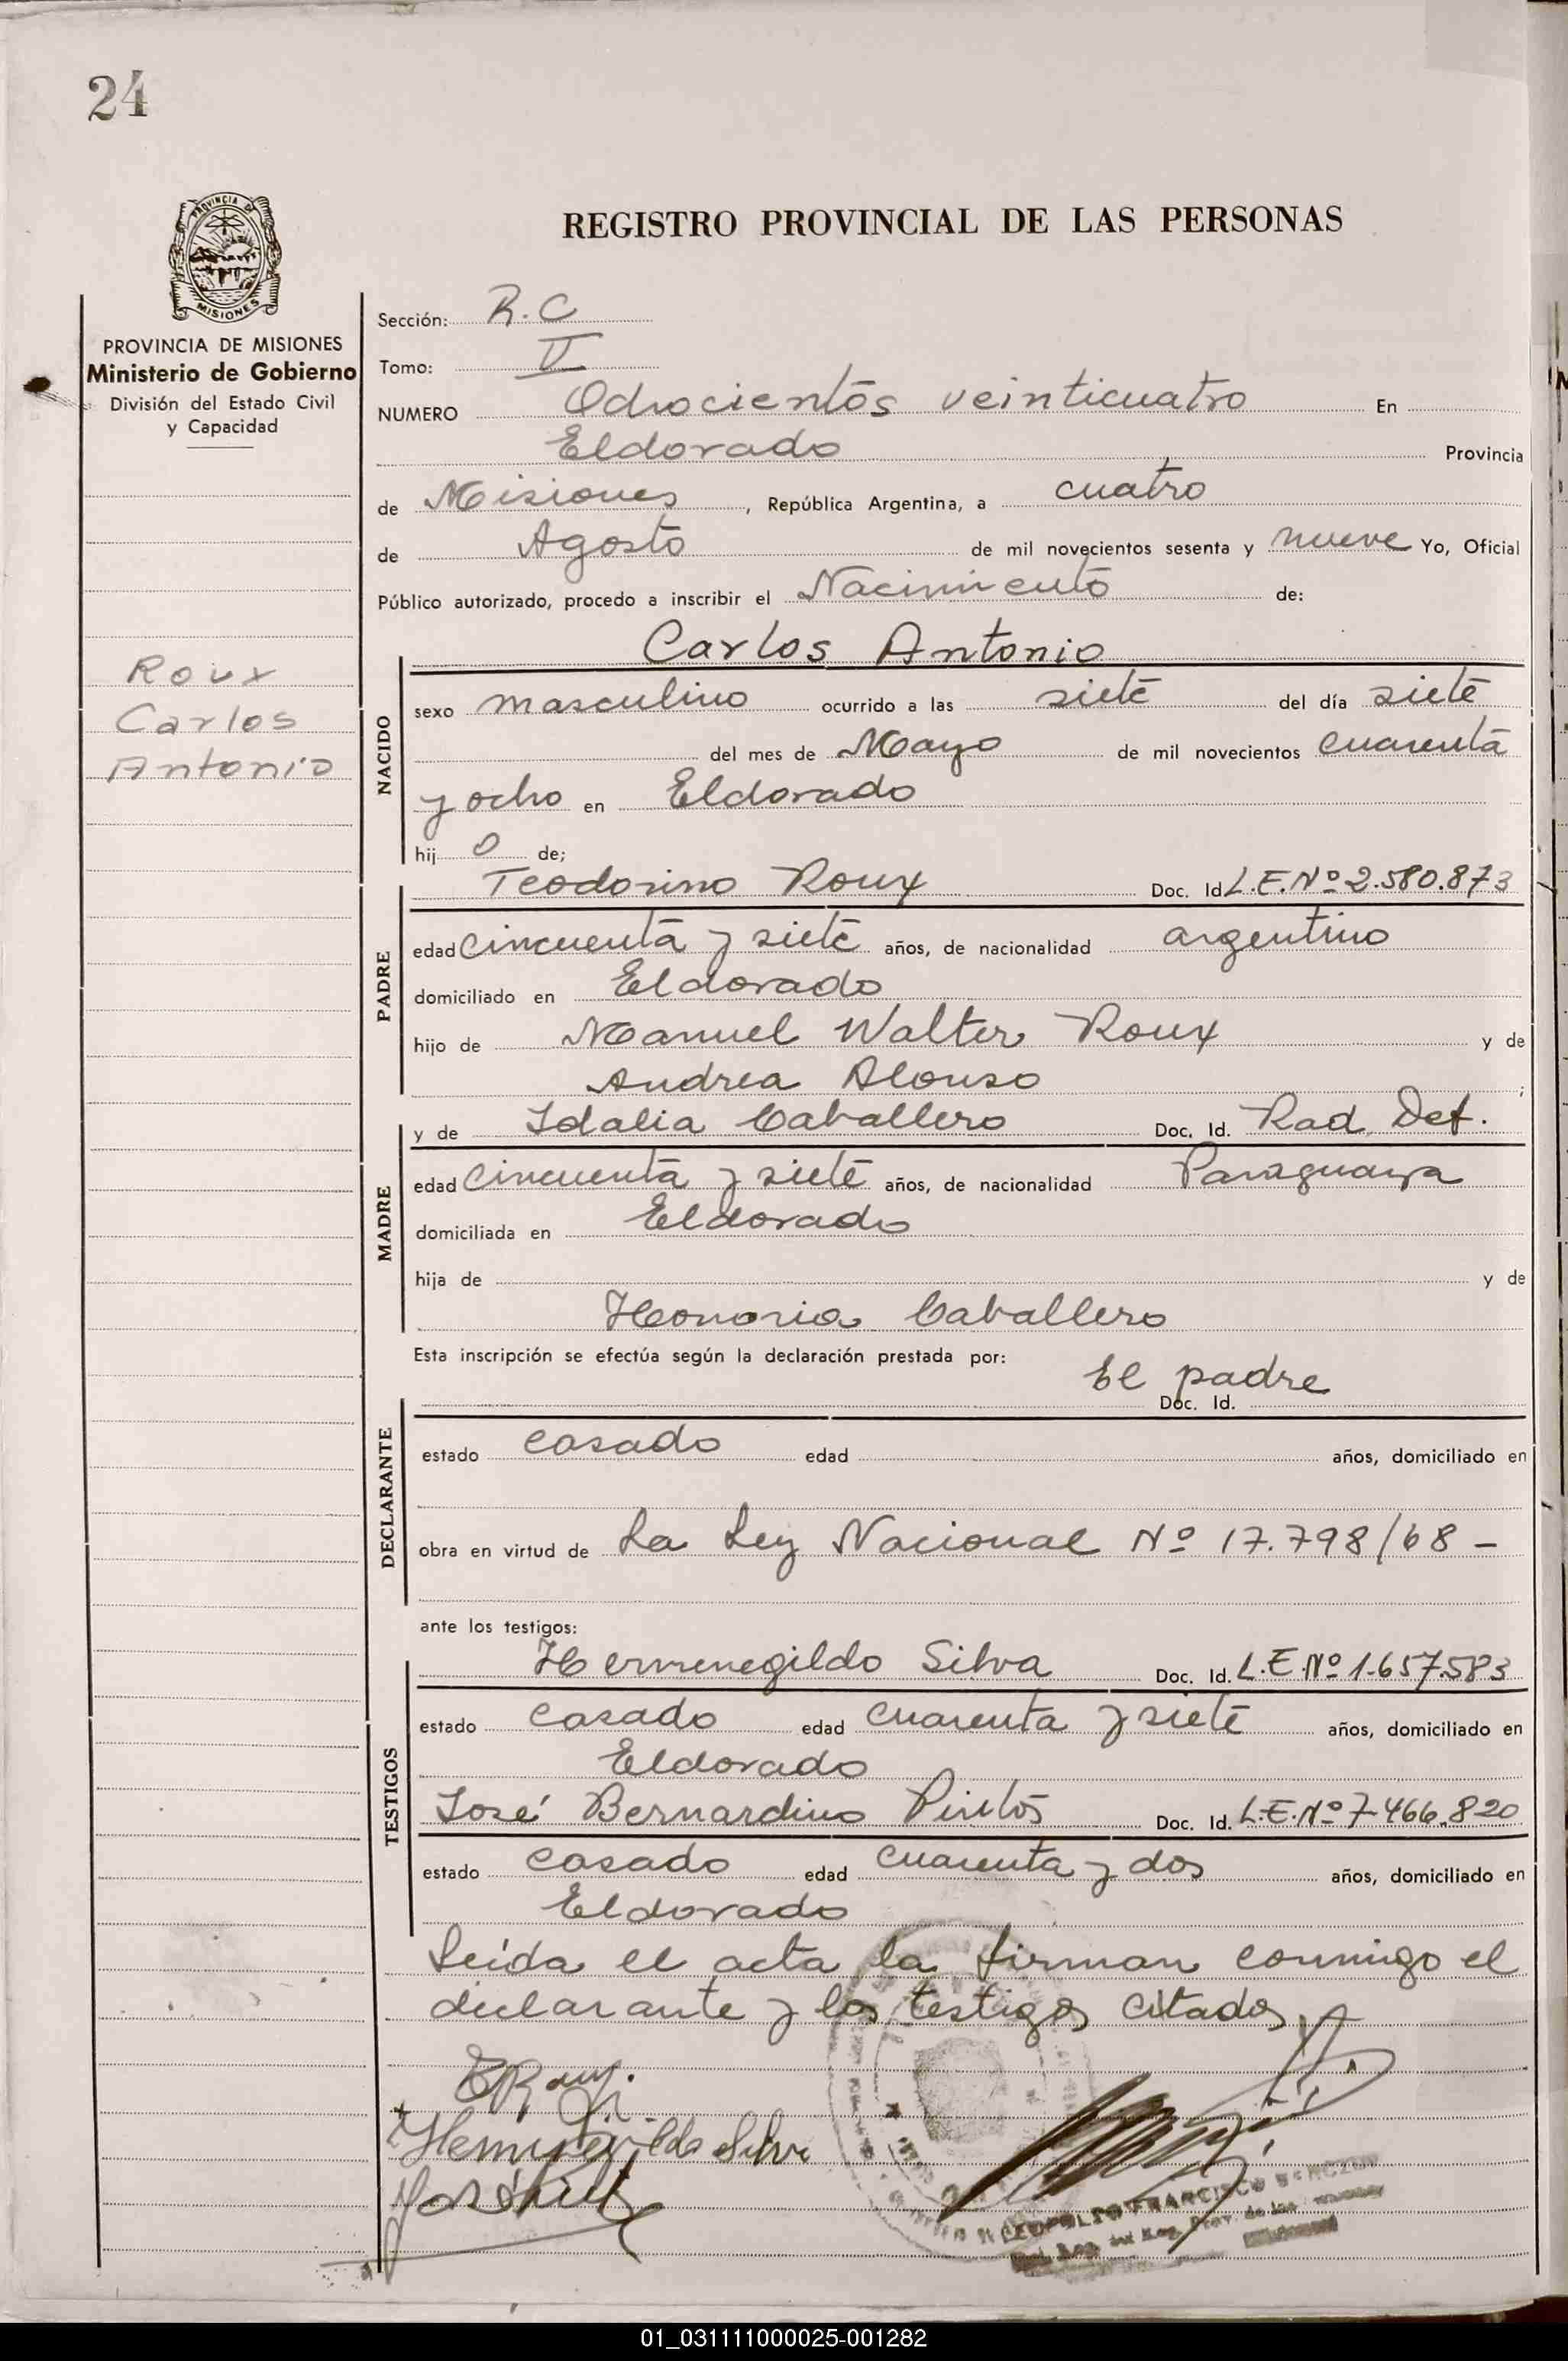 24
PROVINCIA D
MISIONES
REGISTRO PROVINCIAL DE LAS PERSONAS
PROVINCIA DE MISIONES
Ministerio de Gobierno
División del Estado Civil
y Capacidad
Roux
Carlos
Antonio
Sección: R.C
Tomo: V
NUMERO Ochocientos veinticuatro En
Eldorado Provincia
de Misiones, República Argentina, a cuatro
de Agosto de mil novecientos sesenta y nueve Yo, Oficial
Público autorizado, procedo a inscribir el Nacimiento de:
Carlos Antonio
NACIDO
sexo masculino ocurrido a las siete del día siete
del mes de Mayo de mil novecientos cuarenta
y ocho en Eldorado
hij o de;
Teodosino Roux Doc. Id L.E. Nº 2.580.873
PADRE
edad cincuenta y siete años, de nacionalidad argentino
domiciliado en Eldorado
hijo de Manuel Walter Roux y de
Andrea Alonso ;
y de Idalia Caballero Doc. Id. Rad. Def.
MADRE
edad cincuenta y siete años, de nacionalidad Paraguaya
domiciliada en Eldorado
hija de y de
Honoria Caballero
Esta inscripción se efectúa según la declaración prestada por:
El padre
Doc. Id.
DECLARANTE
estado casado edad años, domiciliado en
obra en virtud de La Ley Nacional Nº 17.798/68 -
ante los testigos:
Hermenegildo Silva Doc. Id. L.E. Nº 1.657.583
TESTIGOS
estado casado edad cuarenta y siete años, domiciliado en
Eldorado
José Bernardino Pintos Doc. Id. L.E. Nº 7.466.820
estado casado edad cuarenta y dos años, domiciliado en
Eldorado
Leída el acta la firman conmigo el
declarante y los testigos citados
TRoux.
Hermenegildo Silva
LEOPOLDO FRANCISCO
01_031111000025-001282